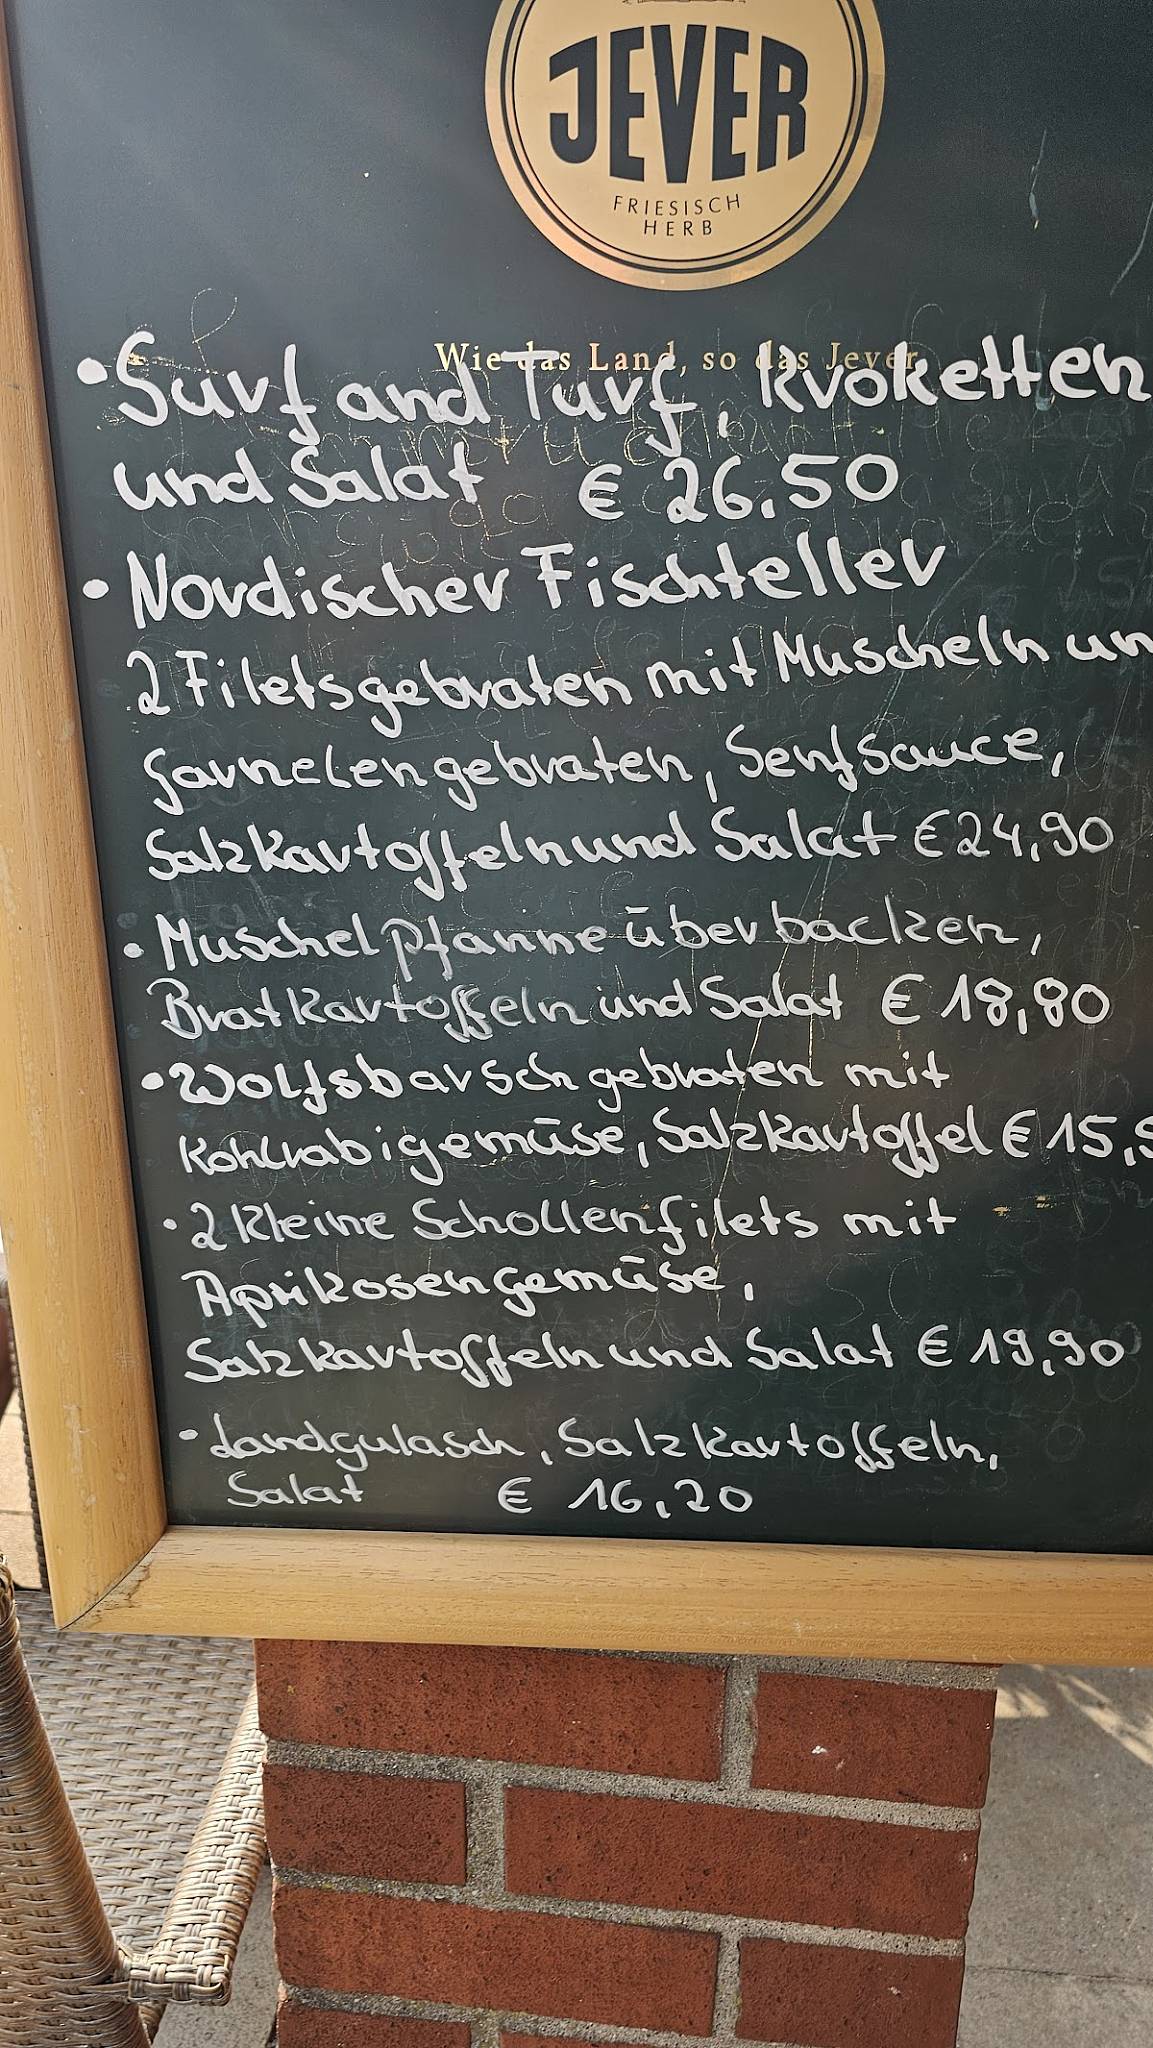 JEVER
FRIESISCH
HERB
Wie das Land, so das Jever.
• Surf and Turf, Kroketten
und Salat € 26,50
• Nordischer Fischteller
2 Filets gebraten mit Muscheln un
Garnelen gebraten, Senfsauce,
Salzkartoffeln und Salat € 24,90
• Muschelpfanne überbacken,
Bratkartoffeln und Salat € 18,80
• Wolfsbarsch gebraten mit
Kohlrabigemüse, Salzkartoffel € 15,9
• 2 kleine Schollenfilets mit
Aprikosengemüse,
Salzkartoffeln und Salat € 19,90
• Landgulasch, Salzkartoffeln,
Salat € 16,20